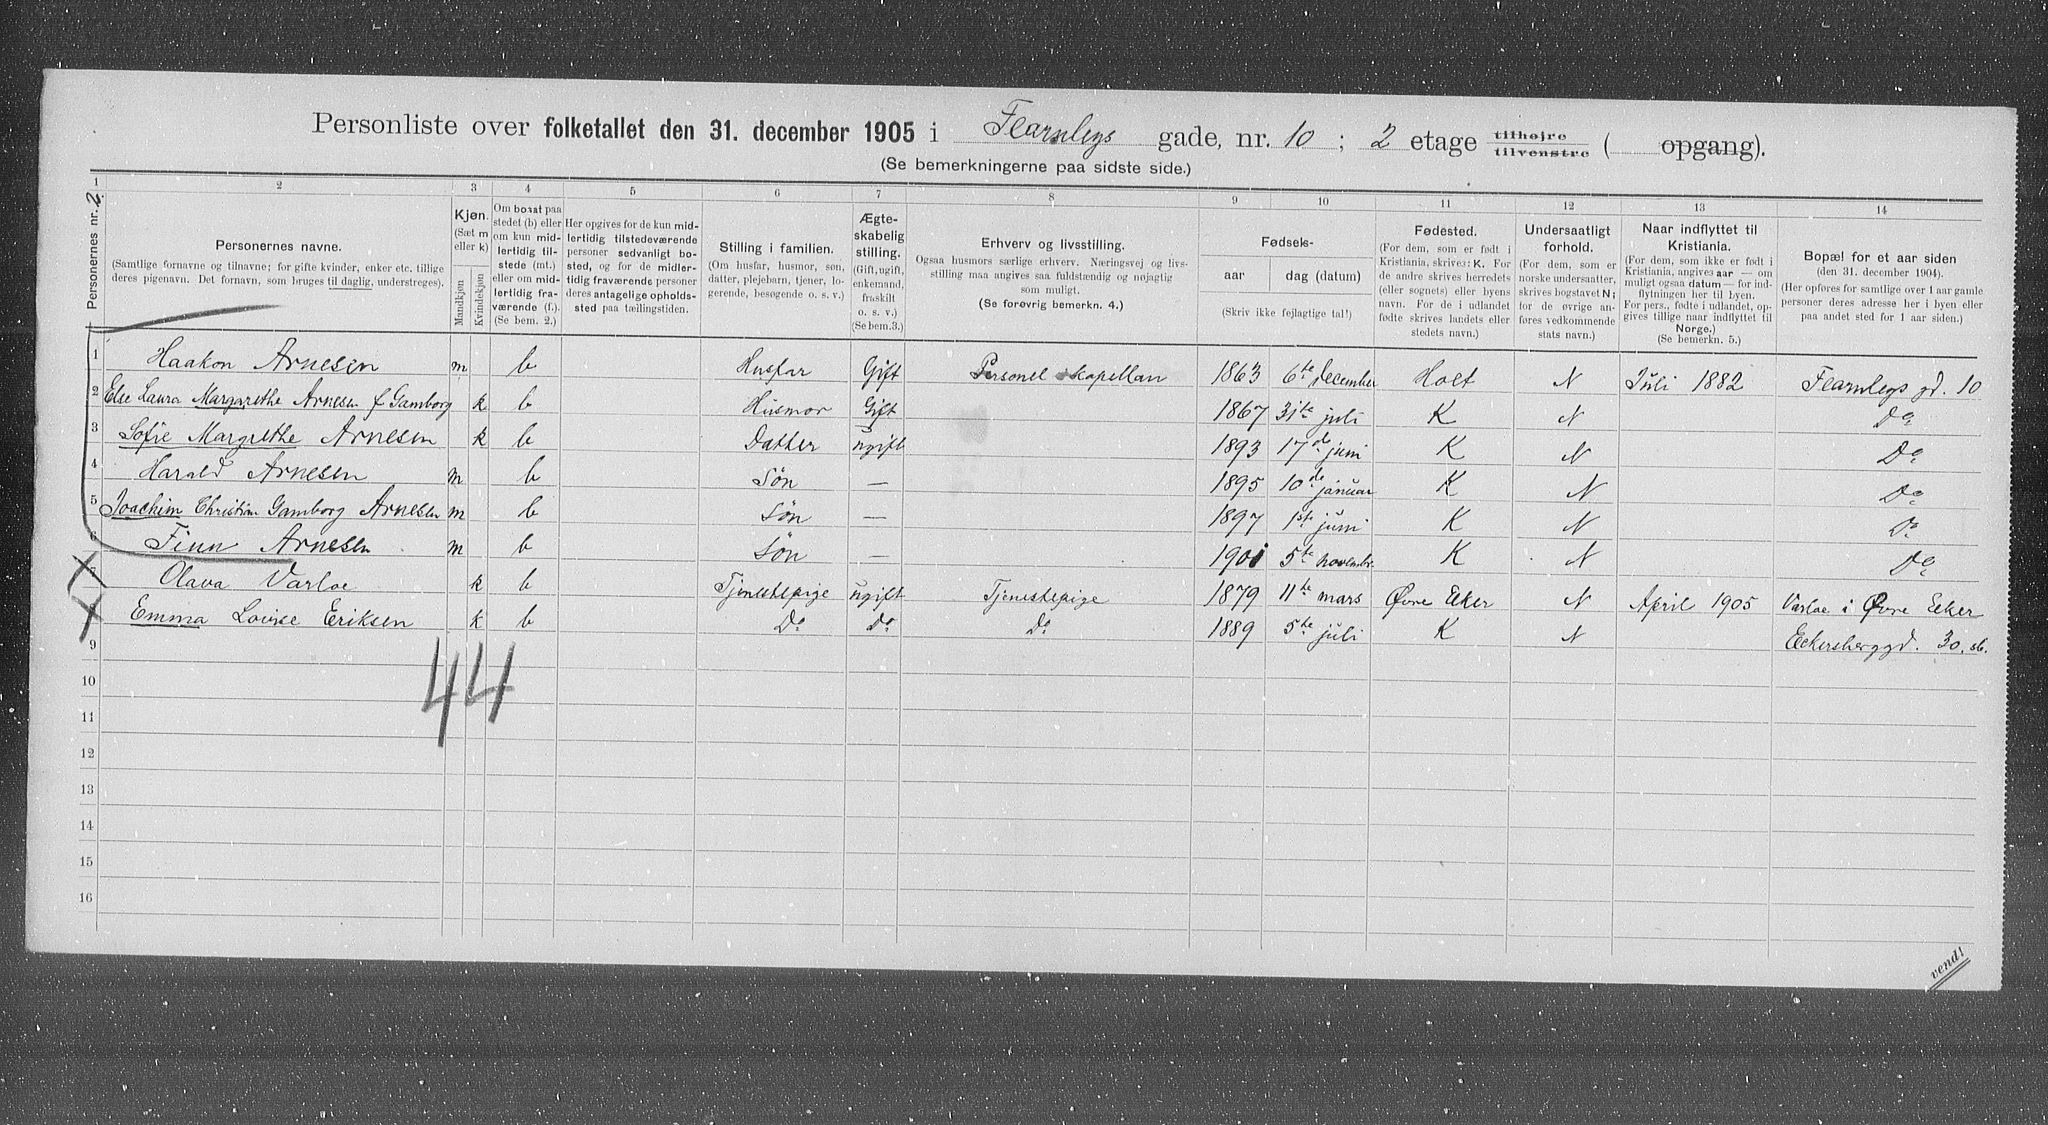 Personliste over folketallet den 31. december 1905 i Fearnleys gade, nr. 10 ; 2 etage tilhøjre tilvenstre ( opgang).
(Se bemerkningerne paa sidste side.)
1 2 3 4 5 6 7 8 9 10 11 12 13 14
Personernes nr. 2.
Personernes navne.
(Samtlige fornavne og tilnavne; for gifte kvinder, enker etc. tillige
deres pigenavn. Det fornavn, som bruges til daglig, understreges).
Kjøn.
(Sæt m
eller k)
Mandkjøn
Kvindekjøn
Om bosat paa
stedet (b) eller
om kun mid-
lertidig til-
stede (mt.)
eller om mid-
lertidig fra-
værende (f.).
(Se bem. 2.)
Her opgives for de kun mid-
lertidig tilstedeværende
personer sedvanlig bo-
sted, og for de midler-
tidig fraværende personer
deres antagelige opholds-
sted paa tællingstiden.
Stilling i familien.
(Om husfar, husmor, søn,
datter, plejebarn, tjener, lo-
gerende, besøgende o. s. v.)
Ægte-
skabelig
stilling.
(Gift, ugift,
enkemand,
fraskilt
o. s. v.)
(Se bem.3.)
Erhverv og livsstilling.
Ogsaa husmors særlige erhverv. Næringsvej og livs-
stilling maa angives saa fuldstændig og nøjagtig
som muligt.
(Se forøvrig bemerkn. 4.)
Fødsels-
aar
dag (datum)
(Skriv ikke fejlagtige tal!)
Fødested.
(For dem, som er født i
Kristiania, skrives: K. For
de andre skrives herredets
(eller sognets) eller byens
navn. For de i udlandet
fødte skrives landets eller
stedets navn.)
Undersaatligt
forhold.
(For dem, som er
norske undersaatter,
skrives bogstavet N;
for de øvrige an-
føres vedkommende
stats navn.)
Naar indflyttet til
Kristiania.
(For dem, som ikke er født i
Kristiania, angives aar — om
muligt ogsaa datum — for ind-
flytningen her til byen.
For pers., fødte i udlandet, op-
gives tillige naar indflyttet til
Norge.)
(Se bemerkn. 5.)
Bopæl for et aar siden
(den 31. december 1904).
(Her opføres for samtlige over 1 aar gamle
personer deres adresse her i byen eller
paa andet sted for 1 aar siden.)
1 Haakon Arnesen m b Husfar Gift Personel kapellan 1863 6te december Holt N Juli 1882 Fearnleys gd. 10
2 Else Laura Margarethe Arnesen f Gamborg k b Husmor Gift 1867 31te juli K N Do
3 Sofie Margrethe Arnesen k b Datter ugift 1893 17de juni K N Do
4 Harald Arnesen m b Søn — 1895 10de januar K N Do
5 Joachim Christian Gamborg Arnesen m b Søn — 1897 1ste juni K N Do
6 Finn Arnesen m b Søn — 1901 5te novembr. K N Do
7 Olava Varloe k b Tjenestepige ugift Tjenestepige 1879 11te mars Øvre Eker N April 1905 Varloe i Øvre Eeker
8 Emma Lovise Eriksen k b Do Do Do 1889 5te juli K N Eckersberggd. 30, st.
9
44
10
11
12
13
14
15
16
vend!